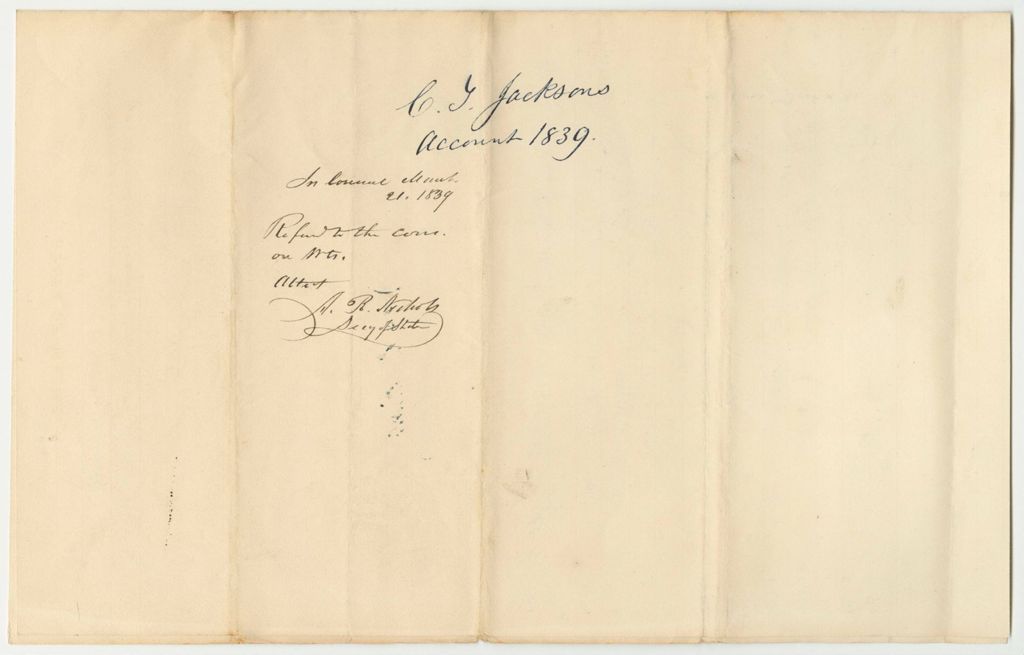 C. T. Jacksons
Account 1839.
In Council March
21. 1839
Referd to the com.
on Wts.
Attest
A. R. Nichols
Secy of State